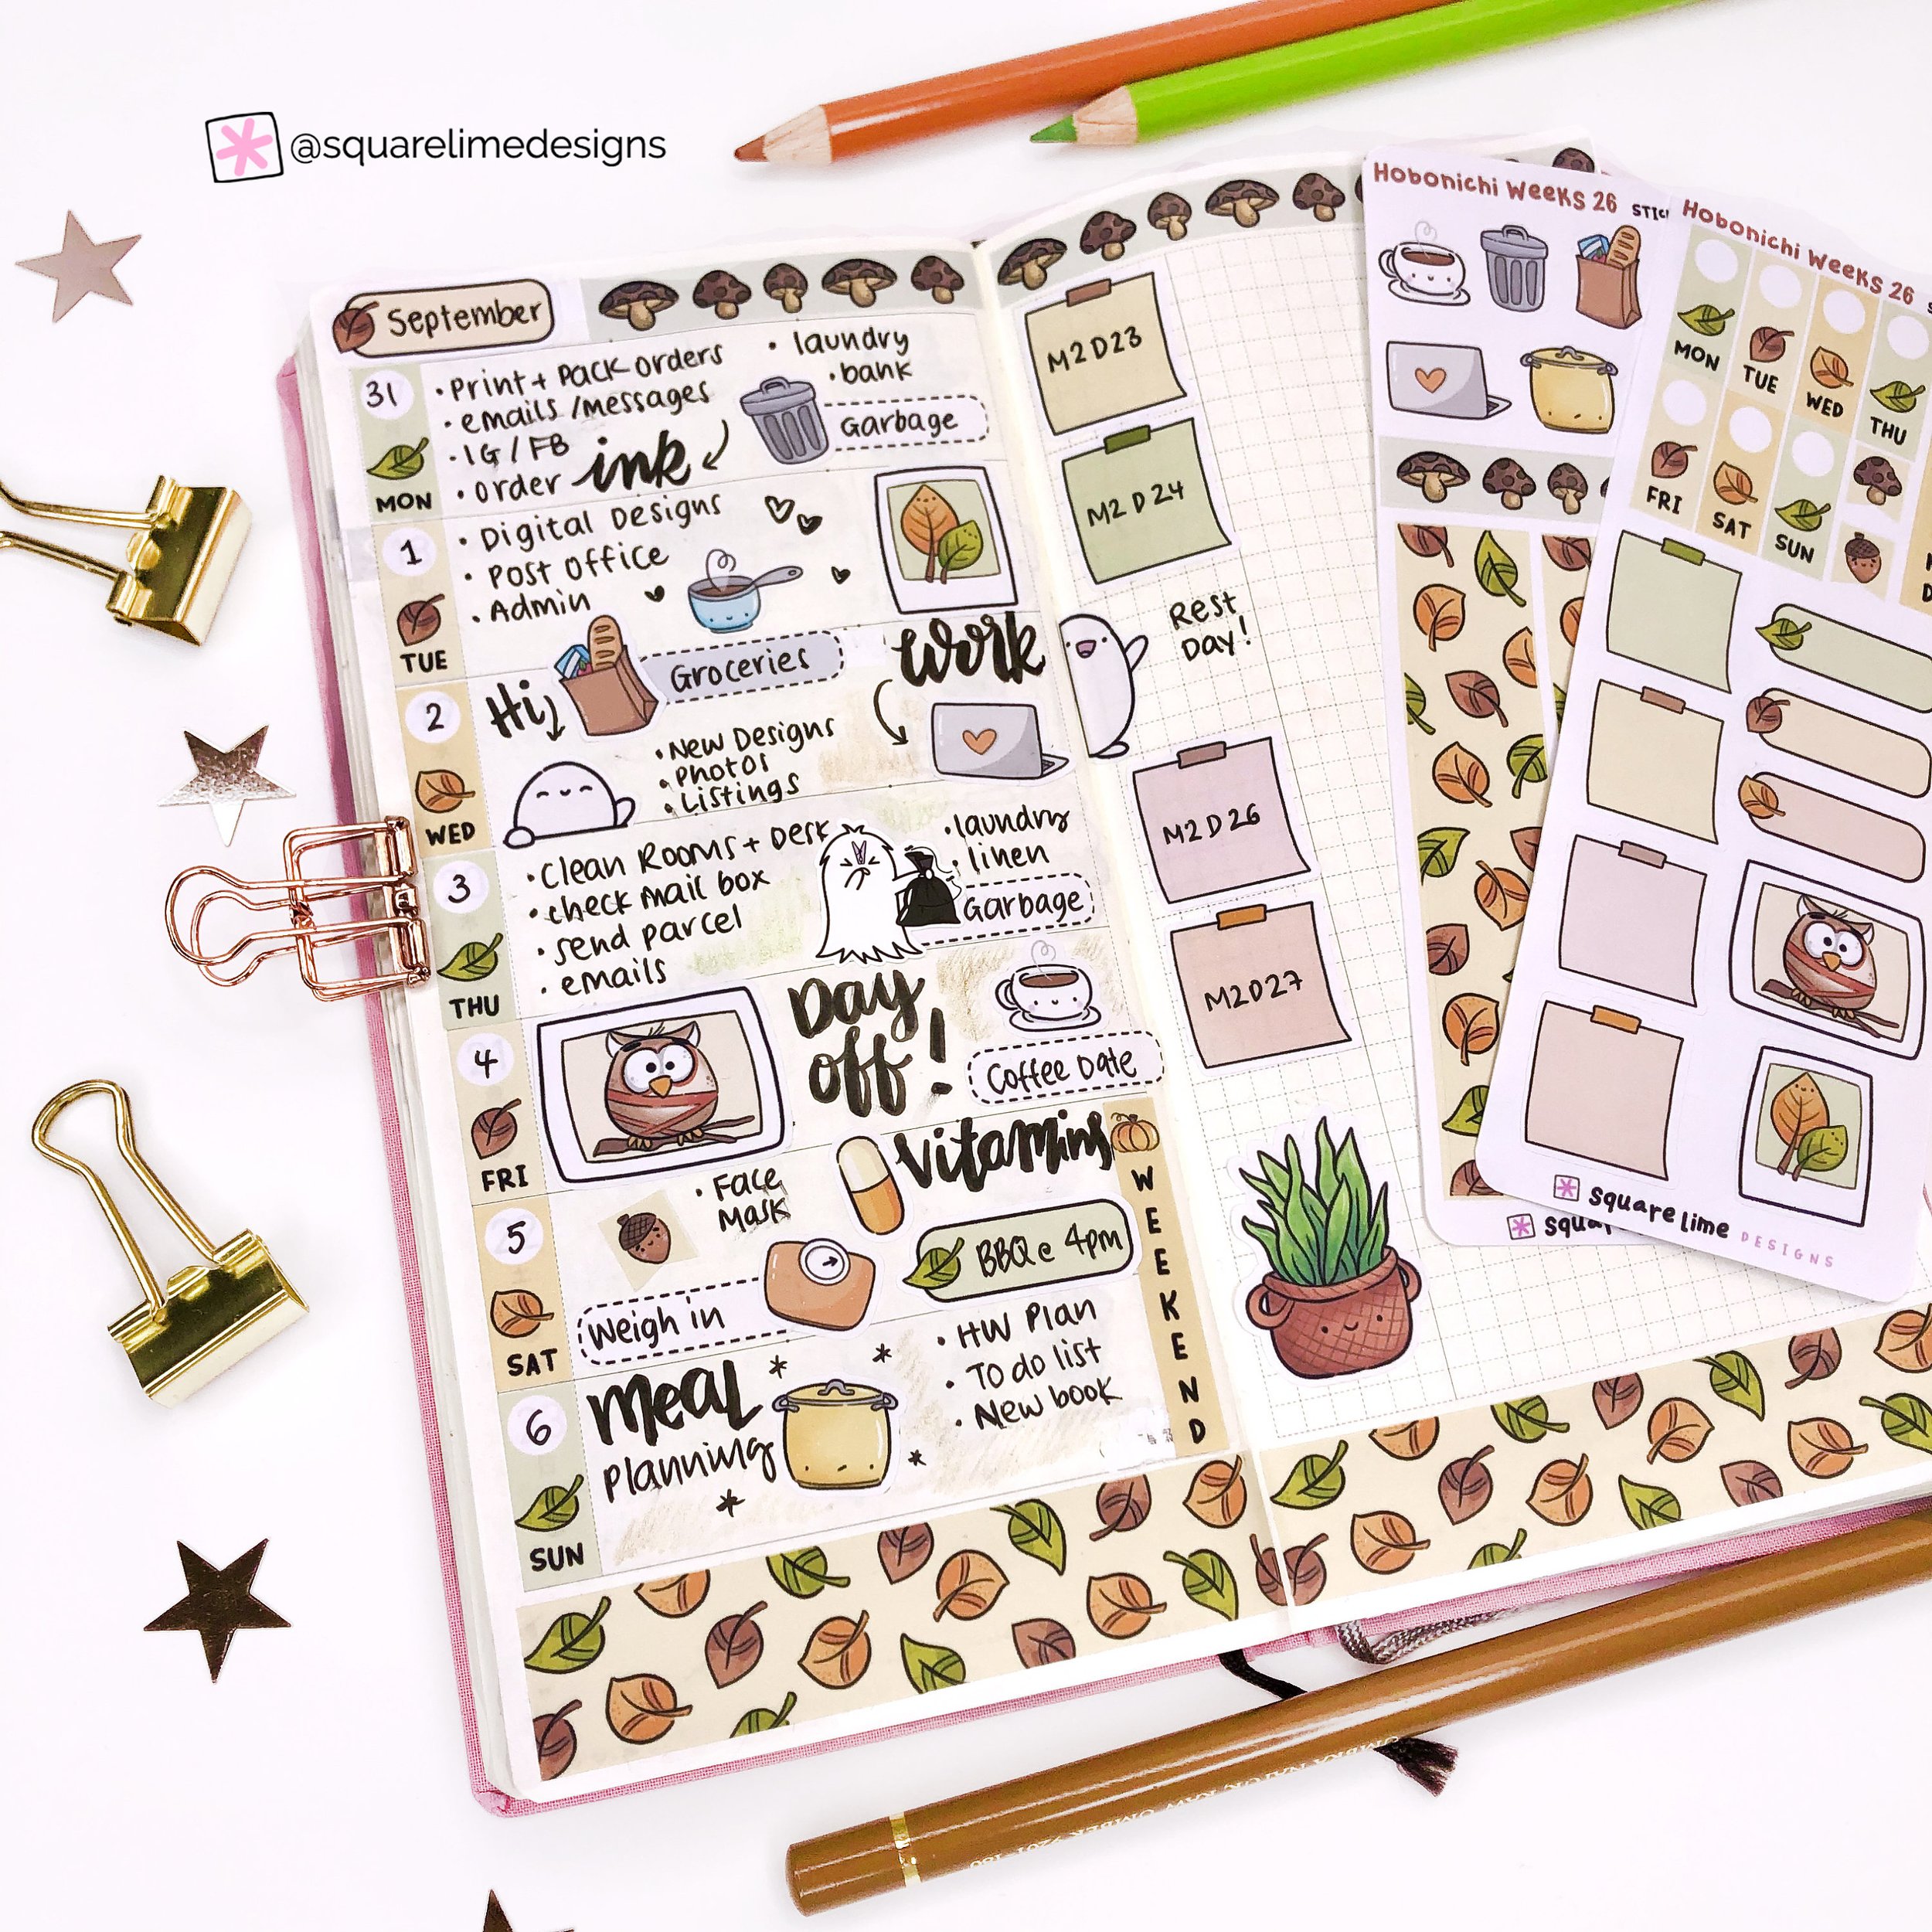 @squarelimedesigns
September
31
MON
• Print + Pack orders
• emails / messages
• IG / FB
• order ink
• laundry
• bank
Garbage
1
TUE
• Digital Designs
• Post office
• Admin
2
WED
Hi
Groceries
work
• New Designs
• Photos
• Listings
3
THU
• Clean Rooms + Desk
• check mail box
• send parcel
• emails
• laundry
• linen
Garbage
4
FRI
Day
off!
Coffee Date
5
SAT
• Face
Mask
Vitamins
BBQ @ 4pm
Weigh in
WEEKEND
6
SUN
Meal
planning
• HW Plan
• To do list
• New book
M2D23
M2D24
Rest
Day!
M2D26
M2D27
Hobonichi Weeks 26
Hobonichi Weeks 26
MON
TUE
WED
THU
FRI
SAT
SUN
square lime
DESIGNS